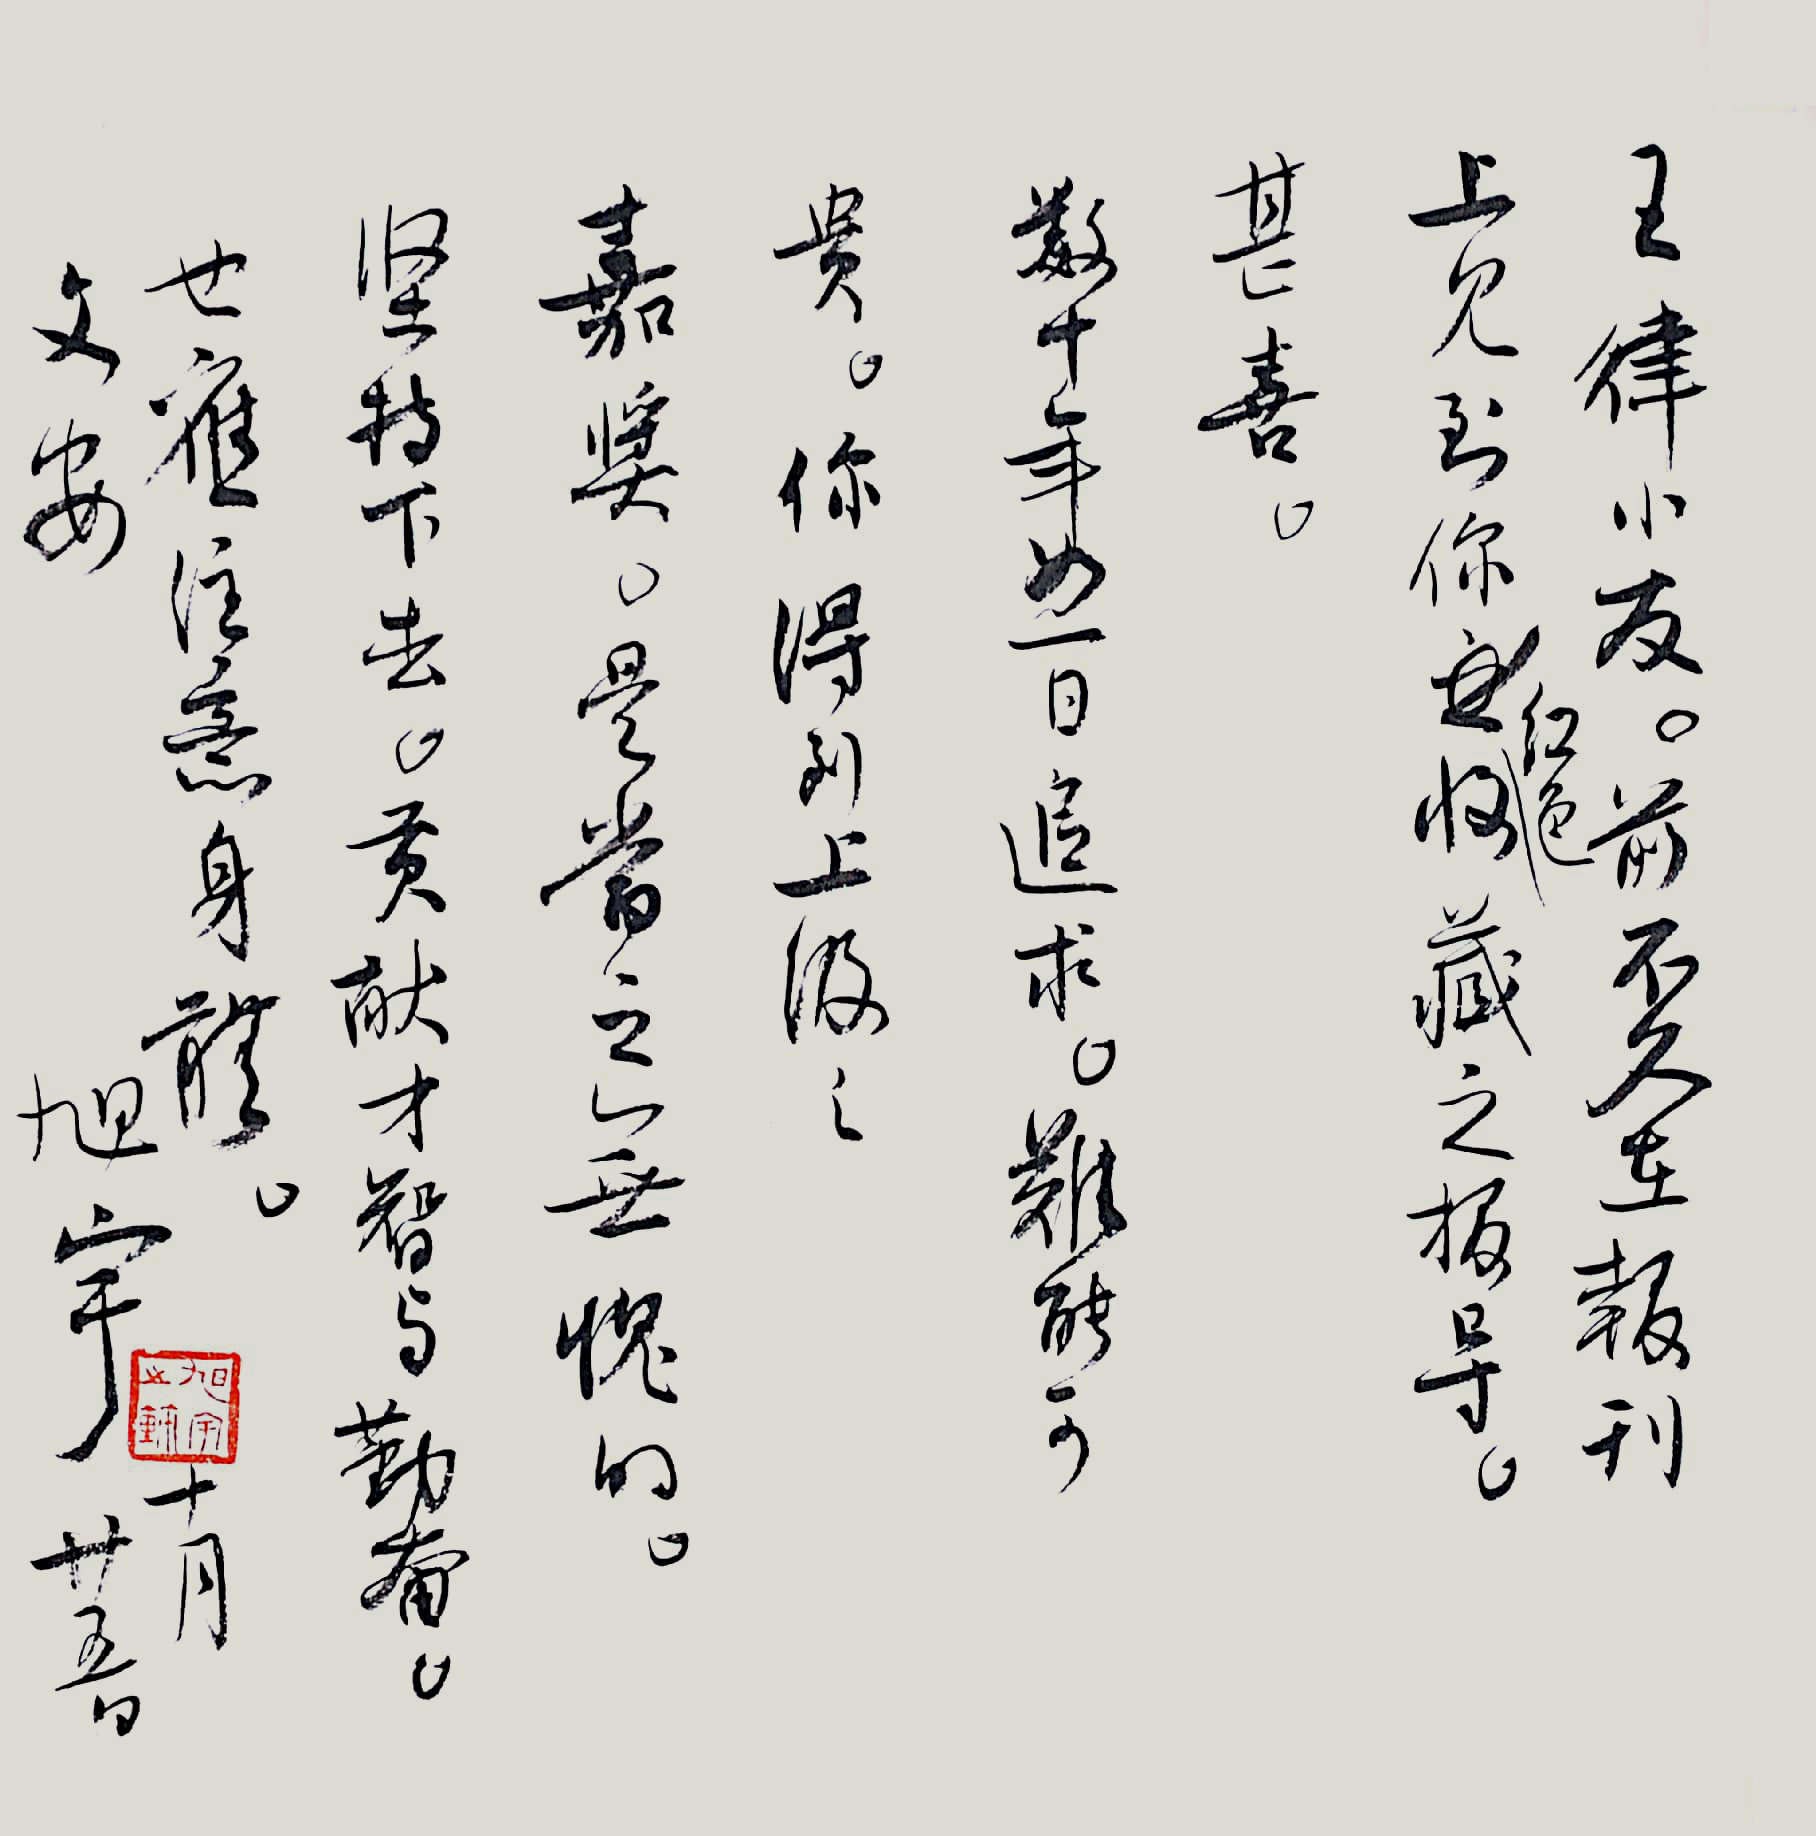 王律小友。前不久在報刊
上见到你红色收藏之报导。
甚喜。
数十年如一日追求。難能可
贵。你得到上级之
嘉奖。是當之無愧的。
坚持下去。贡献才智与勤奋。
也應注意身體。
文安
旭宇
旭宇
十月
廿五日